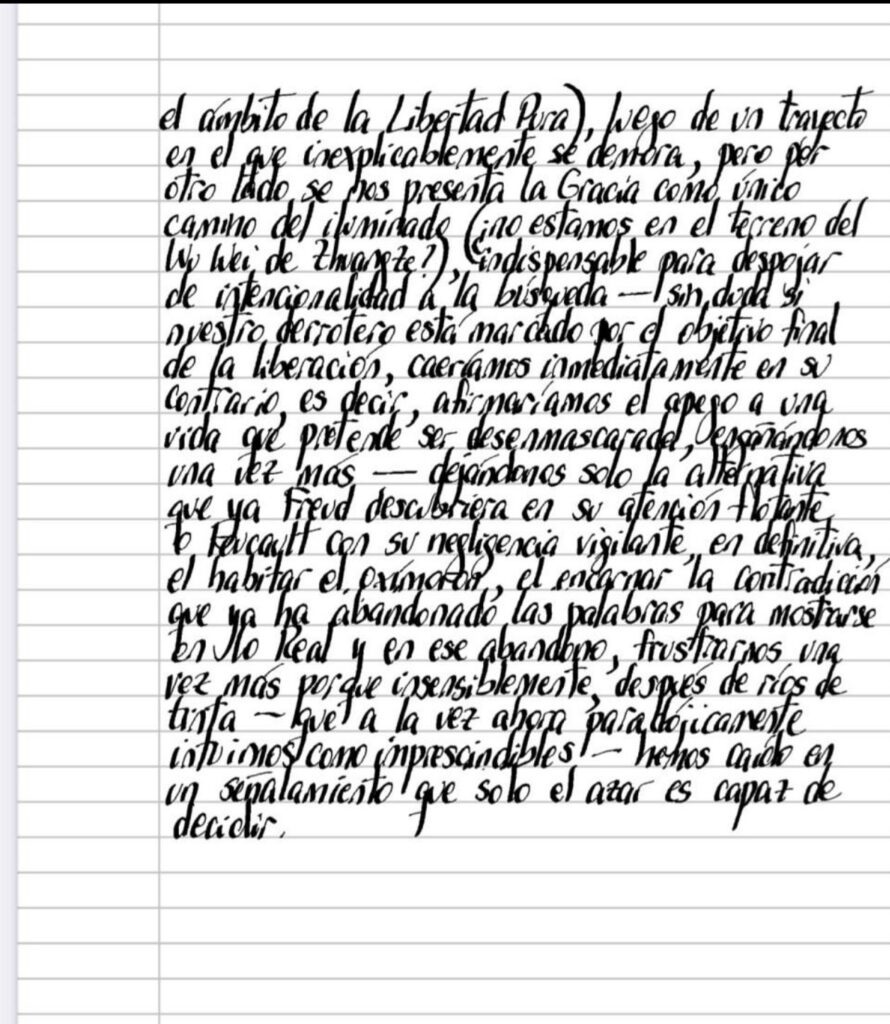 el ámbito de la Libertad Pura), luego de un trayecto
en el que inexplicablemente se demora, pero por
otro lado se nos presenta la Gracia como único
camino del iluminado (¿no estamos en el terreno del
Wu Wei de Zhuangze?), indispensable para despojar
de intencionalidad a la búsqueda — sin duda si
nuestro derrotero está marcado por el objetivo final
de la liberación, caeríamos inmediatamente en su
contrario, es decir, afirmaríamos el apego a una
vida que pretende ser desenmascarada, engañándonos
una vez más — dejándonos solo la alternativa
que ya Freud descubriera en su atención flotante
o Foucault con su negligencia vigilante, en definitiva,
el habitar el oxímoron, el encarnar la contradicción
que ya ha abandonado las palabras para mostrarse
en lo Real y en ese abandono, frustrarnos una
vez más porque insensiblemente, después de ríos de
tinta — que a la vez ahora paradójicamente
intuimos como imprescindibles — hemos caído en
un señalamiento que solo el azar es capaz de
decidir.